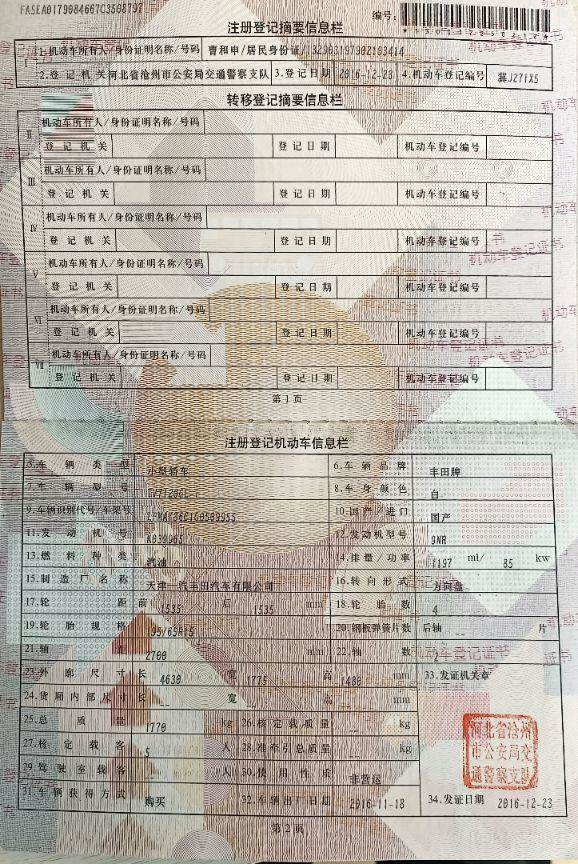 编号:
注册登记摘要信息栏
Ⅰ 1.机动车所有人/身份证明名称/号码 曹和申/居民身份证/132903197902103414
2.登记机关 河北省沧州市公安局交通警察支队 3.登记日期 2016-12-23 4.机动车登记编号 冀J271X5
转移登记摘要信息栏
Ⅱ 机动车所有人/身份证明名称/号码
登记机关 登记日期 机动车登记编号
Ⅲ 机动车所有人/身份证明名称/号码
登记机关 登记日期 机动车登记编号
Ⅳ 机动车所有人/身份证明名称/号码
登记机关 登记日期 机动车登记编号
Ⅴ 机动车所有人/身份证明名称/号码
登记机关 登记日期 机动车登记编号
Ⅵ 机动车所有人/身份证明名称/号码
登记机关 登记日期 机动车登记编号
Ⅶ 机动车所有人/身份证明名称/号码
登记机关 登记日期 机动车登记编号
第1页
注册登记机动车信息栏
5.车辆类型 小型轿车 6.车辆品牌 丰田牌
7.车辆型号 8.车身颜色 白
9.车辆识别代号/车架号 10.国产/进口 国产
11.发动机号 12.发动机型号 9NR
13.燃料种类 汽油 14.排量/功率 1197 ml/ 85 kw
15.制造厂名称 天津一汽丰田汽车有限公司 16.转向形式 方向盘
17.轮距 前 1535 后 1535 mm 18.轮胎数 4
19.轮胎规格 195/65R15 20.钢板弹簧片数 后轴 -- 片
21.轴距 2700 mm 22.轴数 2
23.外廓尺寸 长 4630 宽 1775 高 1480 mm 33.发证机关章
24.货厢内部尺寸 长 -- 宽 -- 高 -- mm
25.总质量 1770 kg 26.核定载质量 -- kg
27.核定载客 5 人 28.准牵引总质量 -- kg
29.驾驶室载客 -- 人 30.使用性质 非营运
河北省沧州
市公安局交
通警察支队
31.车辆获得方式 购买 32.车辆出厂日期 2016-11-18 34.发证日期 2016-12-23
第2页